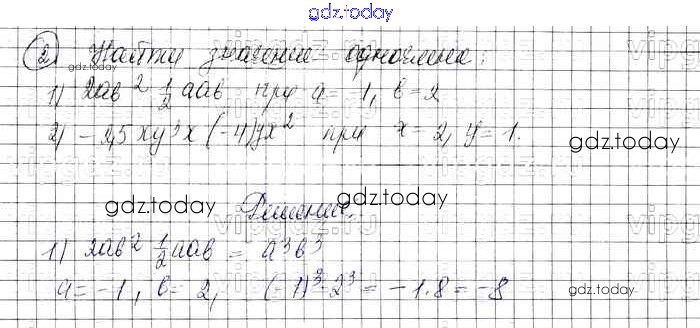 gdz.today
2) Найти значение одночлена:
1) 2ab² ½ aab при a = -1, b = 2
2) -2,5 xy³x (-4)yx² при x = 2, y = 1.
gdz.today
gdz.today Решение. gdz.today
1) 2ab² ½ aab = a³b³
a = -1, b = 2, (-1)³·2³ = -1·8 = -8
gdz.today